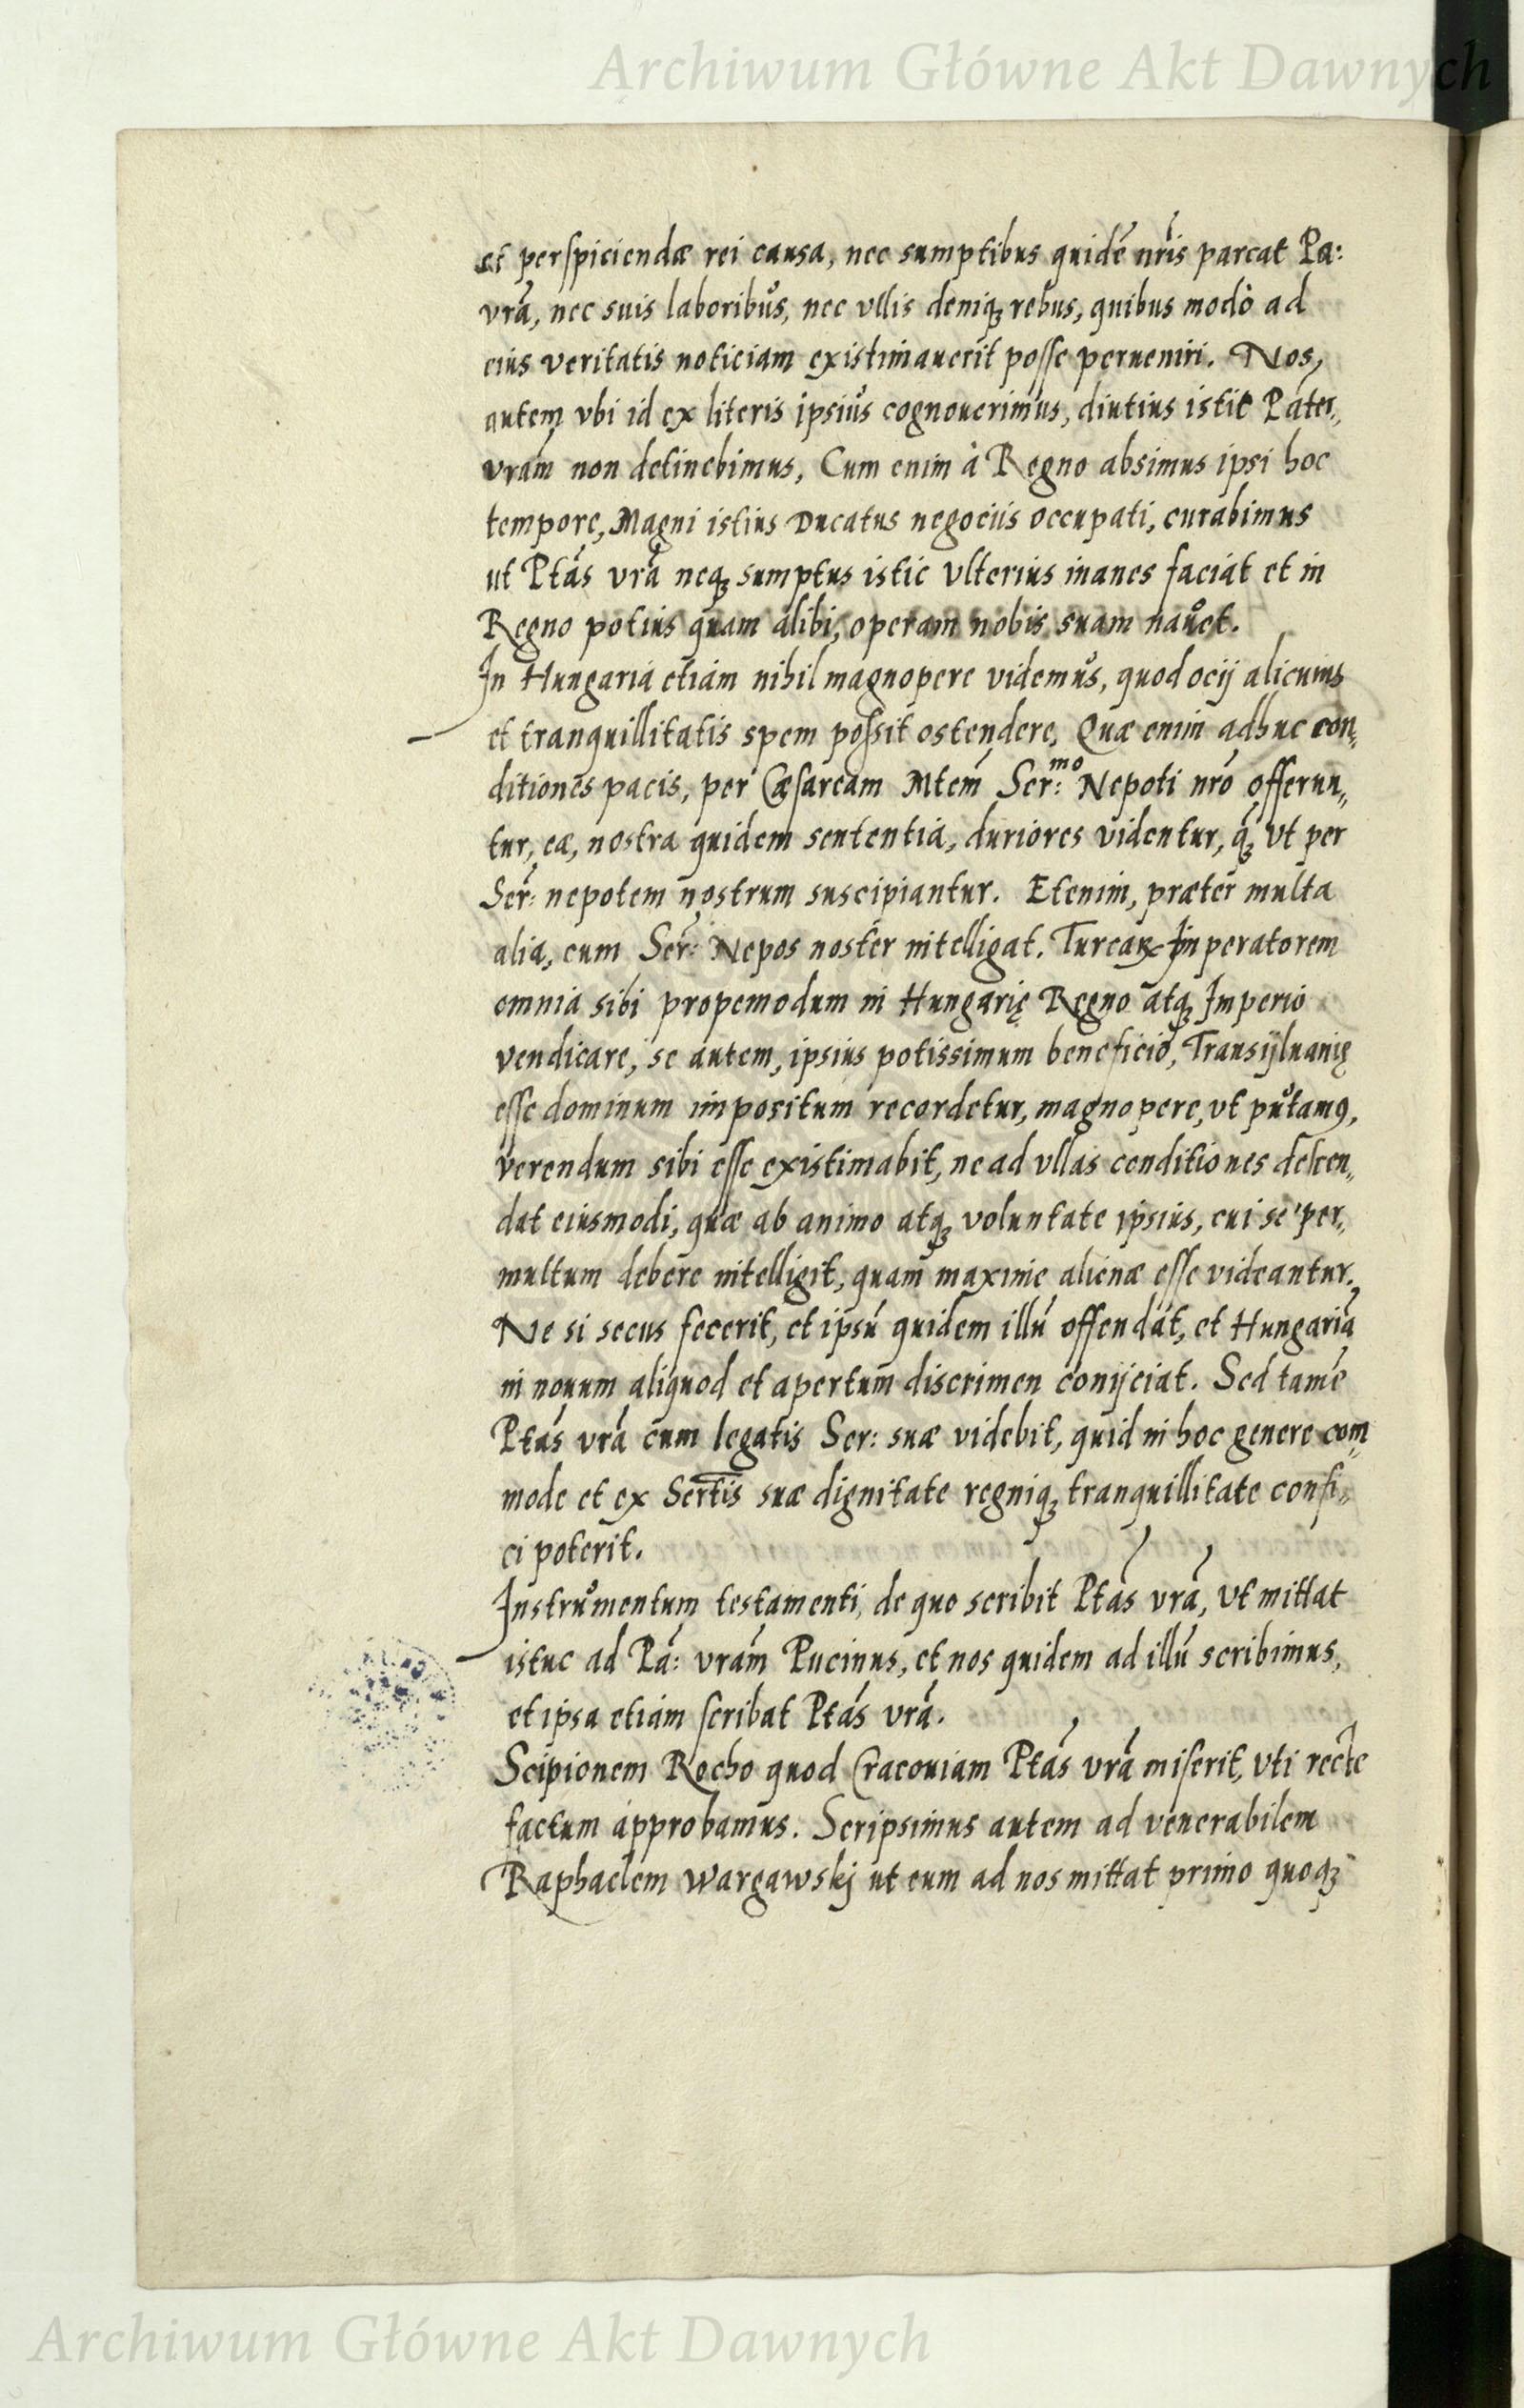 Archiwum Główne Akt Dawnych
et perspiciendæ rei causa, nec sumptibus quidē nr̄is parcat Pa:
vrā, nec suis laboribus, nec vllis deniq; rebus, quibus modò ad
eius veritatis noticiam existimauerit posse perueniri. Nos,
autem vbi id ex literis ipsius cognouerimus, diutius istic Pater„
vram̄ non detinebimus, Cum enim à Regno absimus ipsi hoc
tempore, Magni istius Ducatus negociis occupati, curabimus
ut Ptās vrā neq; sumptus istic vlterius inanes faciat et in
Regno potius quam alibi, operam nobis suam nauet.
In Hungaria etiam nihil magnopere videmus, quod ocij alicuius
et tranquillitatis spem possit ostendere, Quæ enim adhuc con„
ditiones pacis, per Cæsaream Mtem̄ Ser:mo Nepoti nrō offerun„
tur, eæ, nostra quidem sententia, duriores videntur, q̄; vt per
Ser̄: nepotem nostrum suscipiantur. Etenim, præter multa
alia, cum Ser̄: Nepos noster intelligat. Turcar Imperatorem
omnia sibi propemodum in Hungarię Regno atq; Imperio
vendicare, se autem, ipsius potissimum beneficio, Transijluanię
esse dominum impositum recordetur, magnopere, vt putamꝰ,
verendum sibi esse existimabit, ne ad vllas conditiones descen„
dat eiusmodi, quæ ab animo atq; voluntate ipsius, cui se per„
multum debere intelligit, quam maxime alienæ esse videantur.
Ne si secus fecerit, et ipsū quidem illū offendat, et Hungariā
in nouum aliquod et apertum discrimen conijciat. Sed tamē
Ptās vrā cum legatis Ser: suæ videbit, quid in hoc genere com„
mode et ex Sertīs suæ dignitate regniq; tranquillitate confi„
ci poterit.
Instrumentum testamenti, de quo scribit Ptās vrā, vt mittat
istuc ad Pā: vram̄ Pucinus, et nos quidem ad illū scribimus,
et ipsa etiam scribat Ptās vrā.
Scipionem Rocho quod Cracouiam Ptās vrā miserit, vti recte
factum approbamus. Scripsimus autem ad venerabilem
Raphaelem Wargawskj ut eum ad nos mittat primo quoq;
Archiwum Główne Akt Dawnych